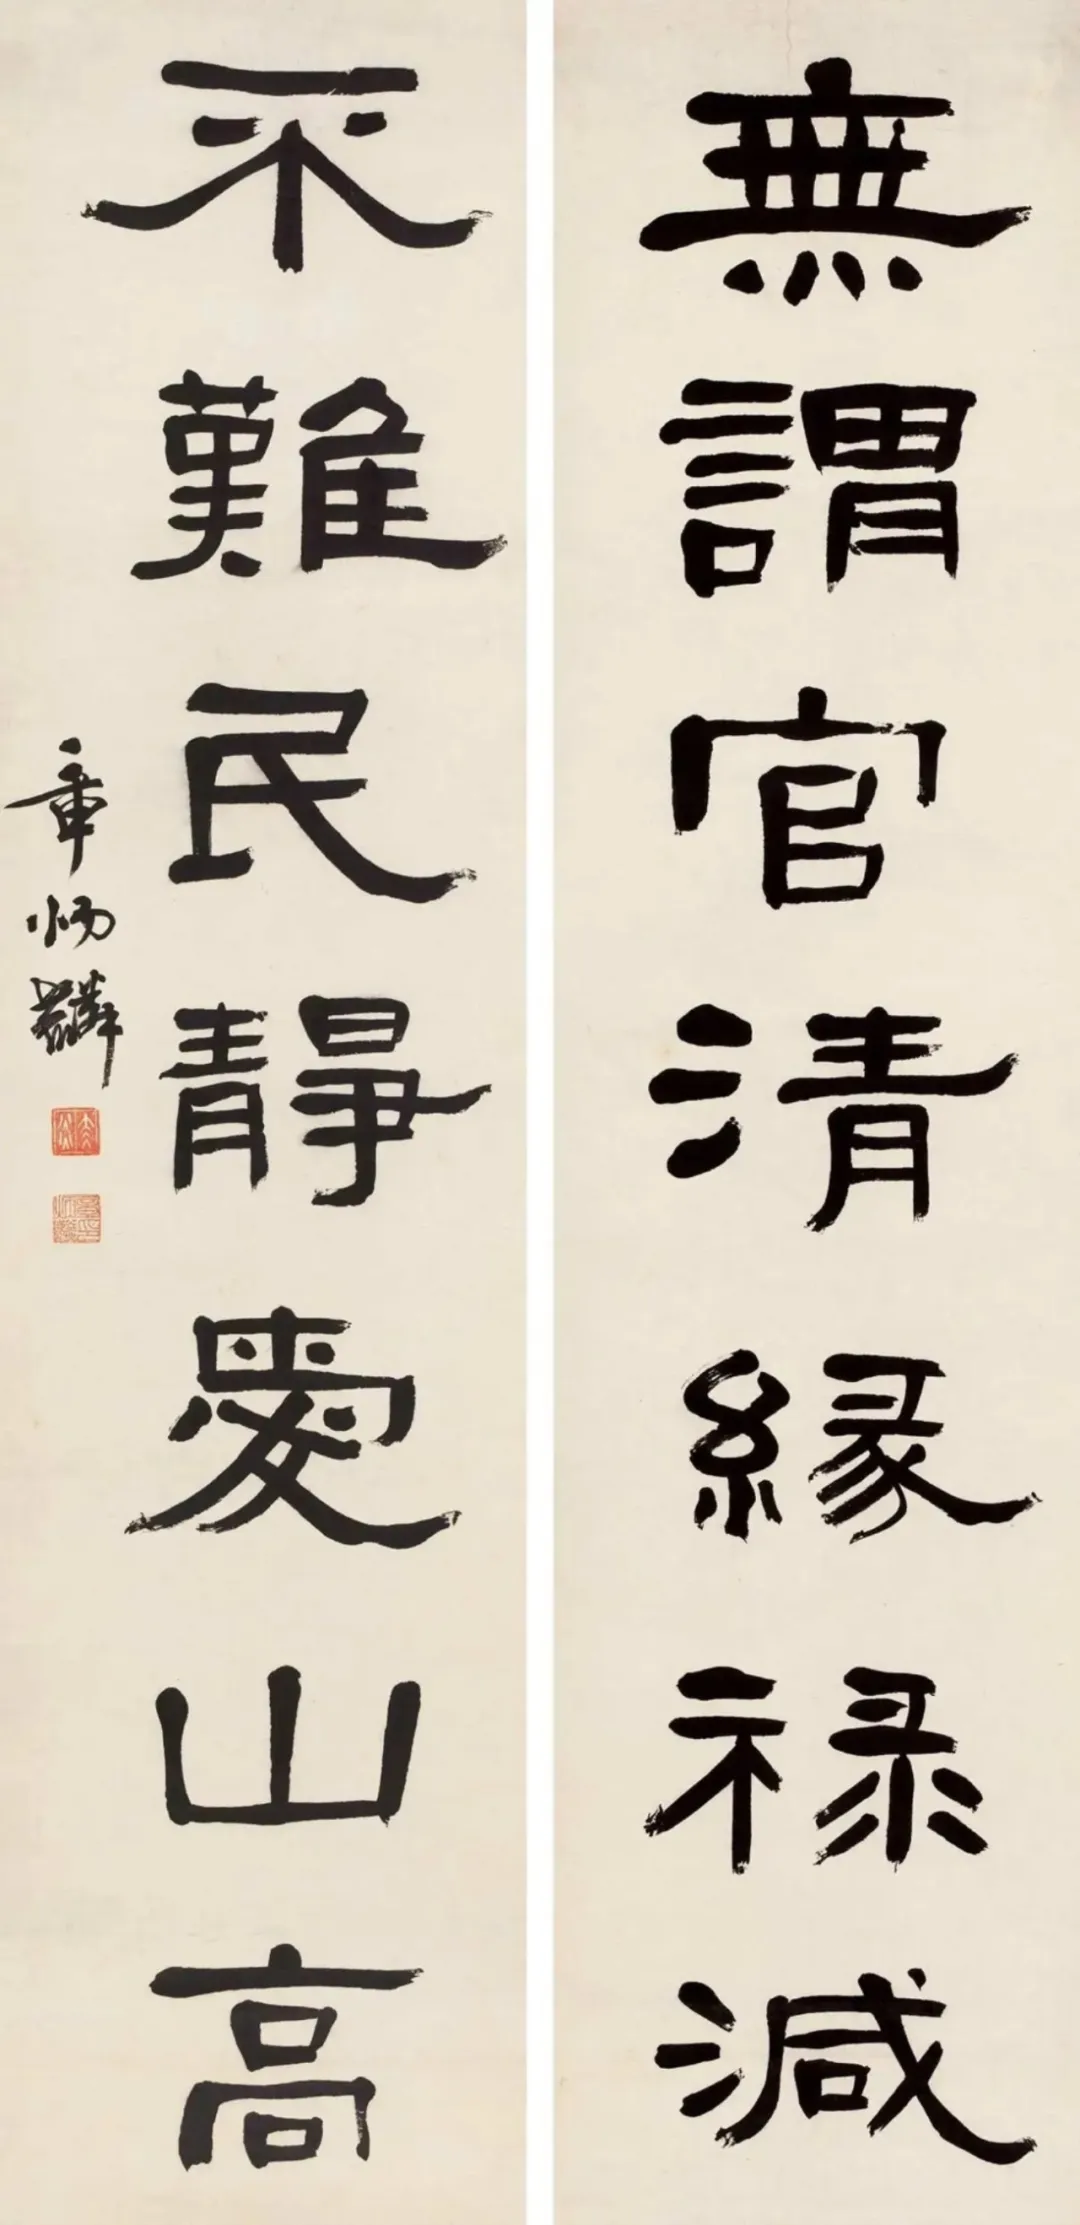 無謂官清緣祿減
不難民靜愛山高
章炳麟
太炎